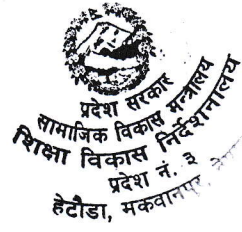 प्रदेश सरकार
सामाजिक विकास मन्त्रालय
शिक्षा विकास निर्देशनालय
प्रदेश नं. ३
हेटौडा, मकवानपुर,